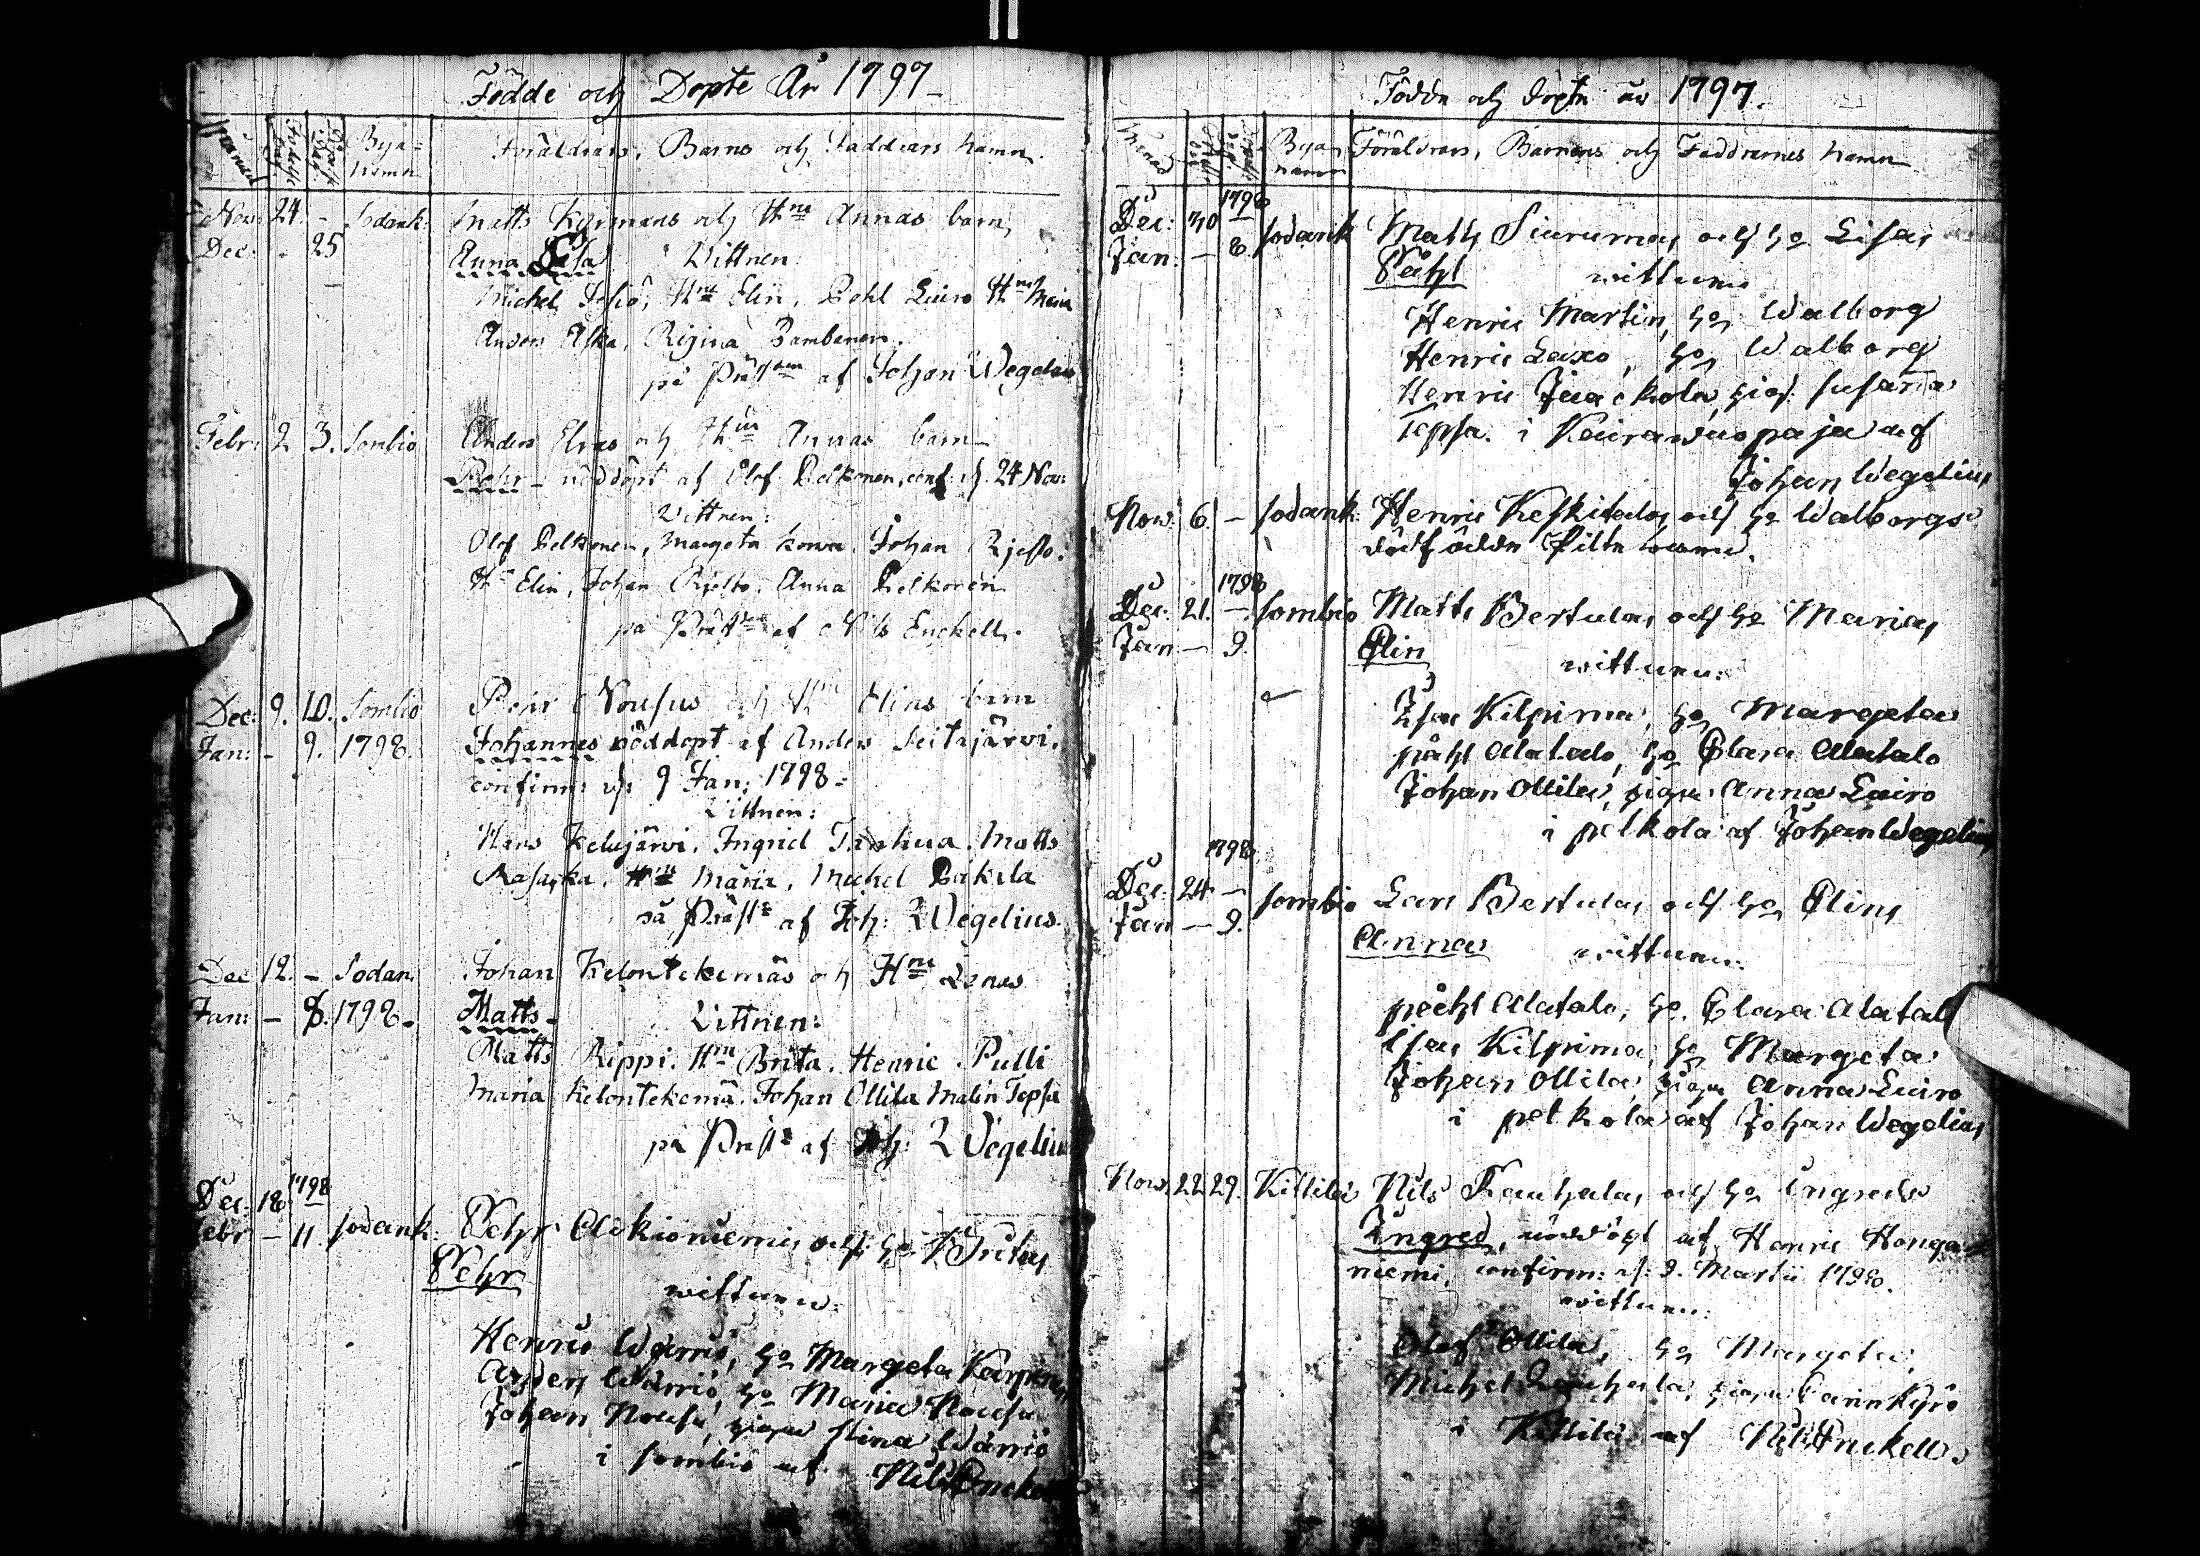 Födde och Döpte År 1797
Månad Födelse Dag Döpelse Dag Byanamn Föräldrars, Barns och Faddrars Namn
Nov: 24. - Sodank: Matts Kyrmans och Hnes Annas barn
Dec: - 25 Anna Lisa Vittnen
Michel Hne Elin, Pohl Luiro Hne Maria
Anders Aska, Regina Pambanen.
på Prästn af Johan Wegelius
Febr: 2 3. Sombio Anders Elras och Hnes Annas barn
Pehr - nöddöpt af Olof Pelkonen, conf: d. 24 Nov:
Vittnen:
Olof Pelkonen, Margeta Johan Riesto.
Hne Elin, Johan Riesto, Anna Pelkonen
på Prästn af Nils Enckell.
Dec: 9. 10. Sombio Pehr Nousus och Hns Elins barn
Jan: - 9. 1798. Johannes nöddöpt af Anders Seitajärvi.
confirm: d: 9 Jan: 1798.
Vittnen:
Hans Kelujärvi, Ingrid Tanhua. Matts
Hne Maria, Michel Pakila
på Präst: af Joh: Wegelius.
Dec 12. - Sodan: Johan Kelontekemäs och Hne Lenas
Jan: - 8. 1798. Matts - Vittnen:
Matts Rippi. Hne Brita. Henric Pulli
Maria Kelontekemä. Johan Ollila Malin Tepsa
på Präst: af Joh: Wegelius
1798
Dec: 18. -
Febr - 11 Sodank: Pehr Askioniemis och ho Britas
Pehr
wittnen:
Henric Warrio, ho Margeta Karpinen
Anders Warrio, ho Maria Nousu
Johan Nousu, pigan Stina Warrio
i Sombio af Nils Enckell
Födde och döpte år 1797.
Månad Byanamn Föräldrars, Barnens och Faddrarnes namn
1798
Dec: 30 - Sodank Matts Siurumas och ho Lisas
Jan: - 8. Påhl wittnen
Henric Martin, ho Walborg
Henric Laxo, ho Walborg
Henric Jaackola, pig: Susanna
Tepsa. i Keirawuopaja af
Johan Wegelius
Now: 6. - Sodank: Henric Keskitalos och ho Walborgs
dödfödde Pilte barn.
1798
Dec: 21. - Sombio Matts Bertulas och ho Marias
Jan - 9. Elin
wittnen:
Isac Kilpima, ho Margeta
påhl Alatalo, ho Clara Alatalo
Johan Ollila, pigan Anna Luiro
i pelkola af Johan Wegelius
1798
Dec: 24 - Sombio Lars Bertulas och ho Elins
Jan - 9. Anna wittnen:
påhl Alatalo, ho Clara Alatalo
Isac Kilpima, ho Margeta
Johan Ollila, pigan Anna Luiro
i pelkola af Johan Wegelius
Now. 22 29. Kittilä Nils Kauhalas och ho Ingreds
Ingred, nöddöpt af Henric Honga
niemi, confirm: d: 9. Martii 1798.
wittnen:
Olof Ollila, ho Margeta
Michel Kauhala, pigan Carin Kyrö
i Kittilä af Nils Enckell